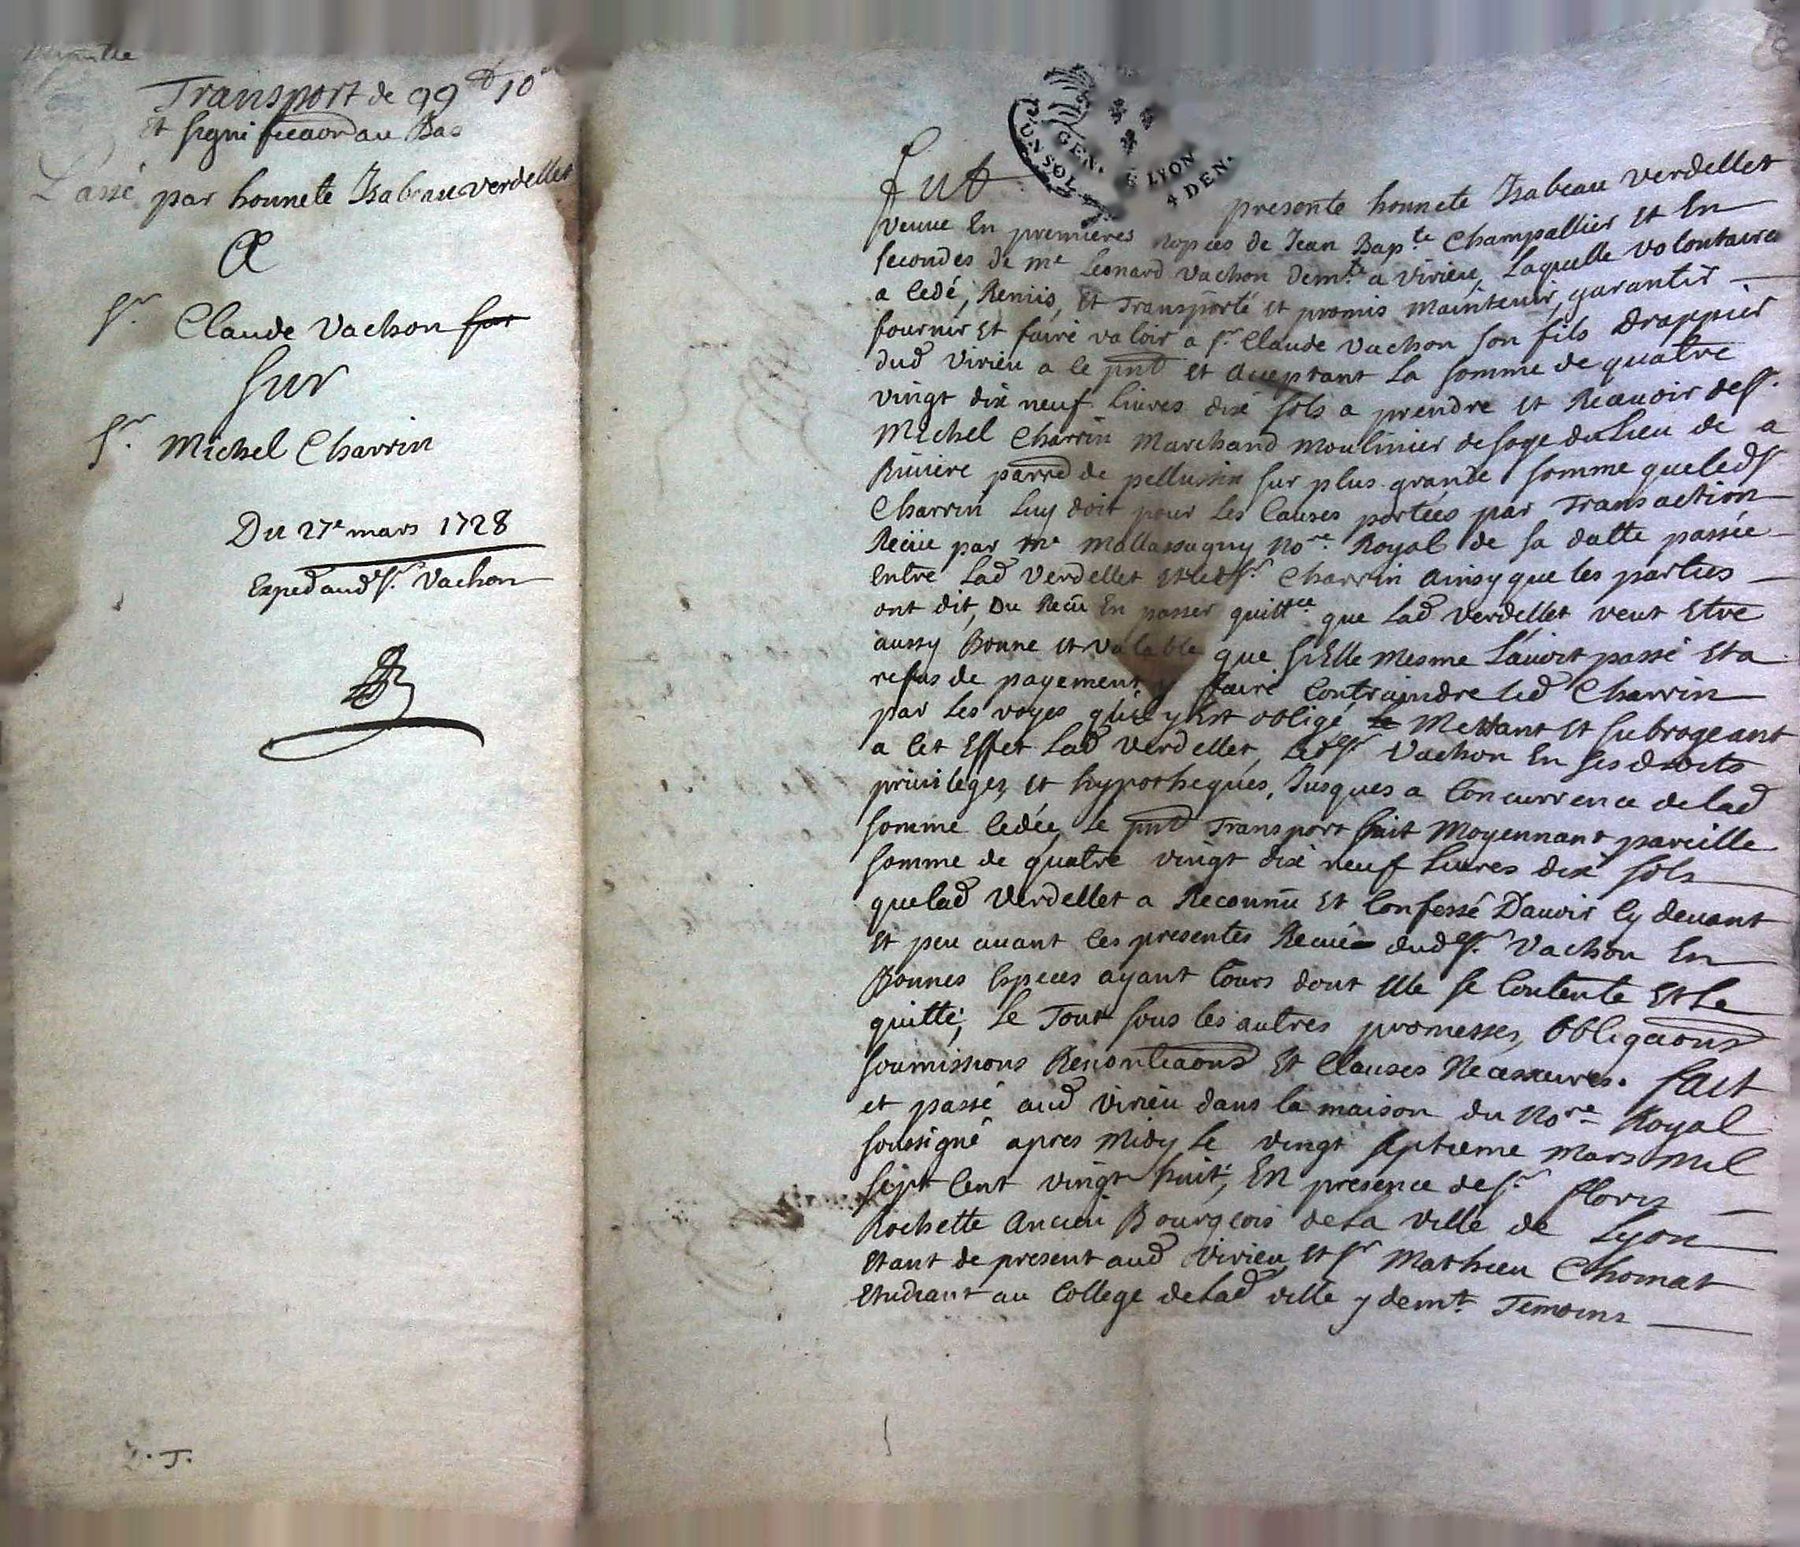 Transport de 99# 10s
Et signifficaon au Bas
Passé par honnete Isabeau Verdellet
A
Sr. Claude Vachon sur
Sur
Sr. Michel Charrin
Du 27e mars 1728
Exped aud Sr. Vachon
2. T.
GEN. LYON
UN SOL 4 DEN.
Fut presente honnete Isabeau Verdellet
veuve En premieres Nopces de Jean Bapte Champallier Et En
secondes de me Leonard Vachon demte a Virieu, Laquelle volontaire
a Cedé, Remis, Et Transporté et promis Maintenir, garantir
fournir Et faire valoir a Sr. Claude Vachon Son fils Drappier
dud Virieu a Ce pnt et aceptant La somme de quatre
vingt dix neuf Livres dix sols a prendre et Recevoir de Sr.
Michel Charrin Marchand Moulinier de soye du Lieu de a
Riviere parre de pellussin sur plus grande somme que led Sr
Charrin Luy doit pour Les Causes portées par Transaction
Reçüe par me Mallassagny Nore Royal de sa datte passée
Entre Lad Verdellet et led Sr. Charrin Ainsy que les parties
ont dit, Du Reçû En passer quittce que Lad Verdellet veut Etre
aussy Bonne et valable que Si Elle Mesme L'avoit passé Et a
refus de payement y faire Contraindre Led Charrin
par Les voyes qu'il y Est obligé Mettant et subrogeant
a Cet Effet Lad Verdellet, Led Sr Vachon En ses droits
privileges, et hypotheques, Jusques a Concurrence de lad
somme Cedée, Le pnt Transport fait Moyennant pareille
somme de quatre vingt dix neuf Livres dix sols
que lad Verdellet a Reconnû Et Confessé D'avoir Cy devant
Et peu avant Ces presentes Recüe dud Sr. Vachon En
Bonnes Especes ayant Cours dont Elle se Contente Et Le
quitte, Le Tout sous les autres promesses, Obligaons
soumissions Renontiaons Et Clauses Necessaires. Fait
et passé aud Virieu dans la maison du Nore Royal
soussigné apres Midy Le vingt septieme Mars Mil
sept Cent vingt huit, En presence de Sr. Flory
Rochette Ancien Bourgeois de La Ville de Lyon
Etant de present aud Virieu, Et Sr Mathieu Chomat
Etudiant au College de Lad ville y demt. Temoins